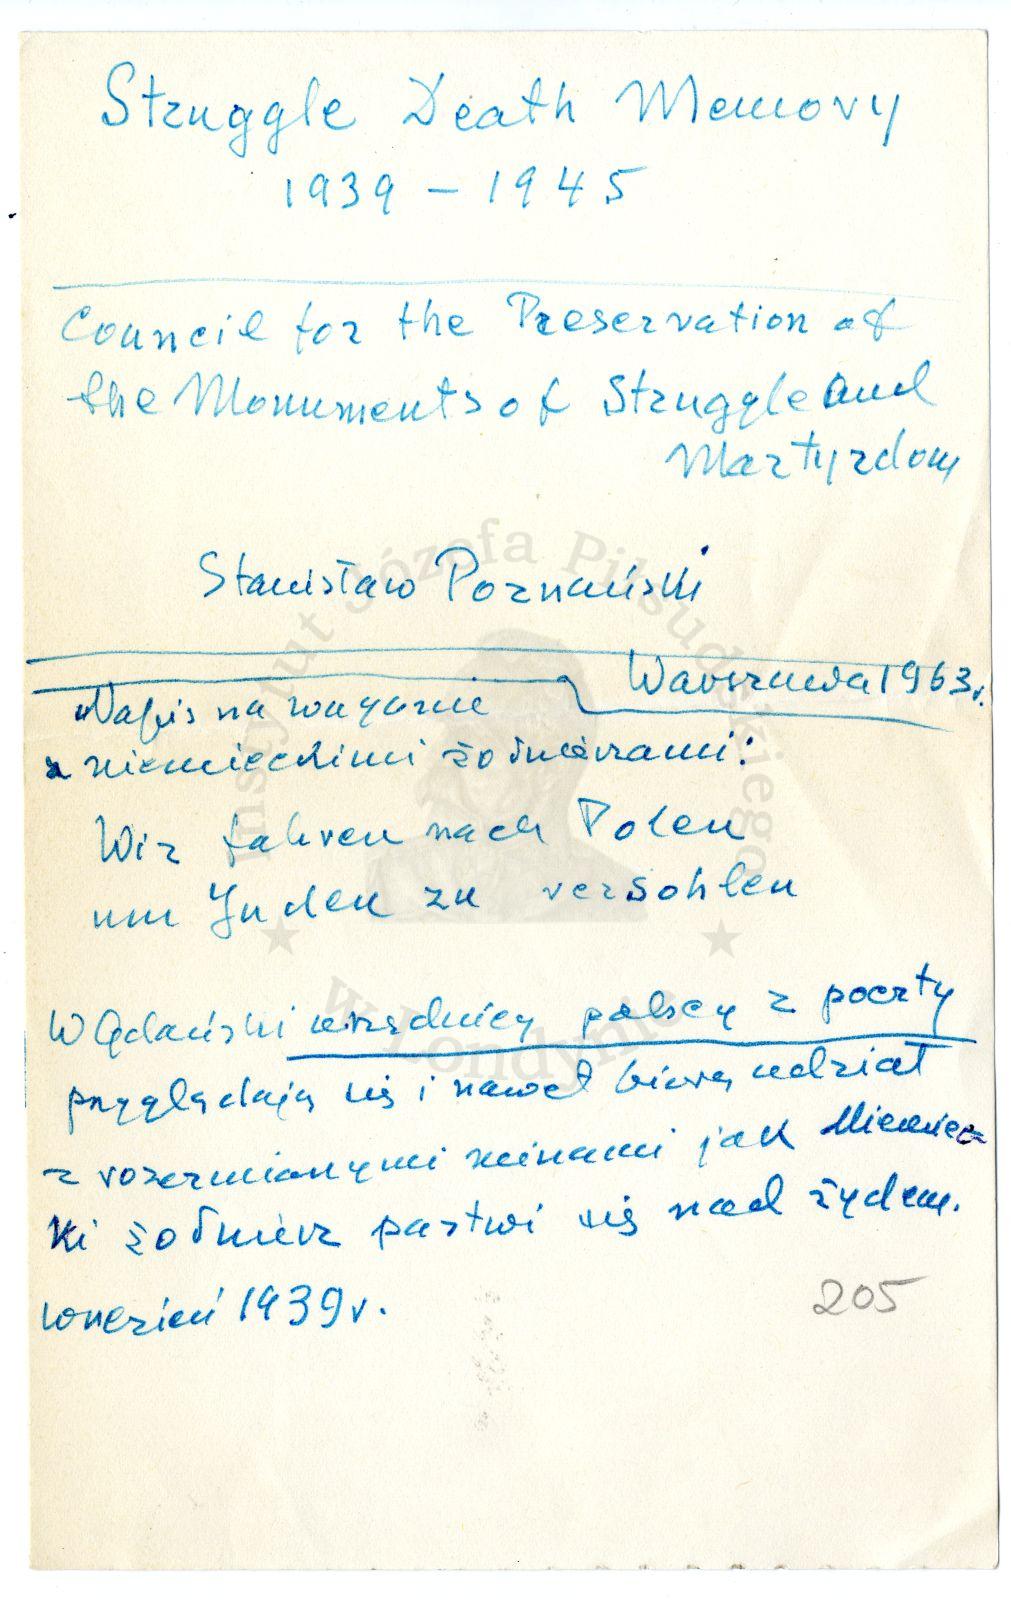 Struggle Death Memory
1939 – 1945
Council for the Preservation of
the Monuments of Struggle and
Martyrdom
Stanisław Poznański
Warszawa 1963.
Napis na wagonie
z niemieckimi żołnierzami:
Wir fahren nach Polen
um Juden zu versohlen
W Gdański urzędnicy polscy z poczty
przyglądają się i nawet biorą udział
z rozesmianymi minami jak Niemiec
ki żołnierz pastwi się nad żydem.
wrzesień 1939 r.
205
Instytut Józefa Piłsudskiego
w Londynie